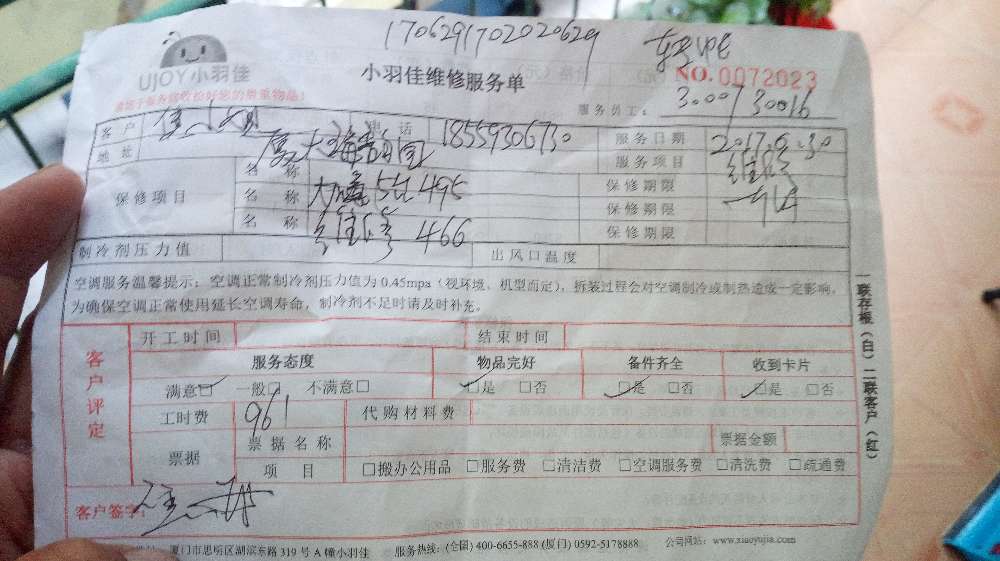 170629170202020629
UJOY小羽佳
小羽佳维修服务单
NO.0072023
服务员工: 3.00730016
客户
电话 18559206730
服务日期 2017.6.30
地址
服务项目 维修
保修项目
名称
保修期限
名称 495
保修期限
名称 维修 466
保修期限
制冷剂压力值
出风口温度
空调服务温馨提示:空调正常制冷剂压力值为0.45mpa(视环境、机型而定),拆装过程会对空调制冷或制热造成一定影响,
为确保空调正常使用延长空调寿命,制冷剂不足时请及时补充。
客户评定
开工时间
结束时间
服务态度
物品完好
备件齐全
收到卡片
满意☑ 一般□ 不满意□
☑是 □否
☑是 □否
☑是 □否
工时费 961
代购材料费
票据
票据名称
票据金额
项目
□搬办公用品 □服务费 □清洁费 □空调服务费 □清洗费 □疏通费
客户签字:
厦门市思明区湖滨东路 319 号 A 幢小羽佳
服务热线:(全国) 400-6655-888 (厦门) 0592-5178888
公司网站:www.xiaoyujia.com
一联存根(白)二联客户(红)